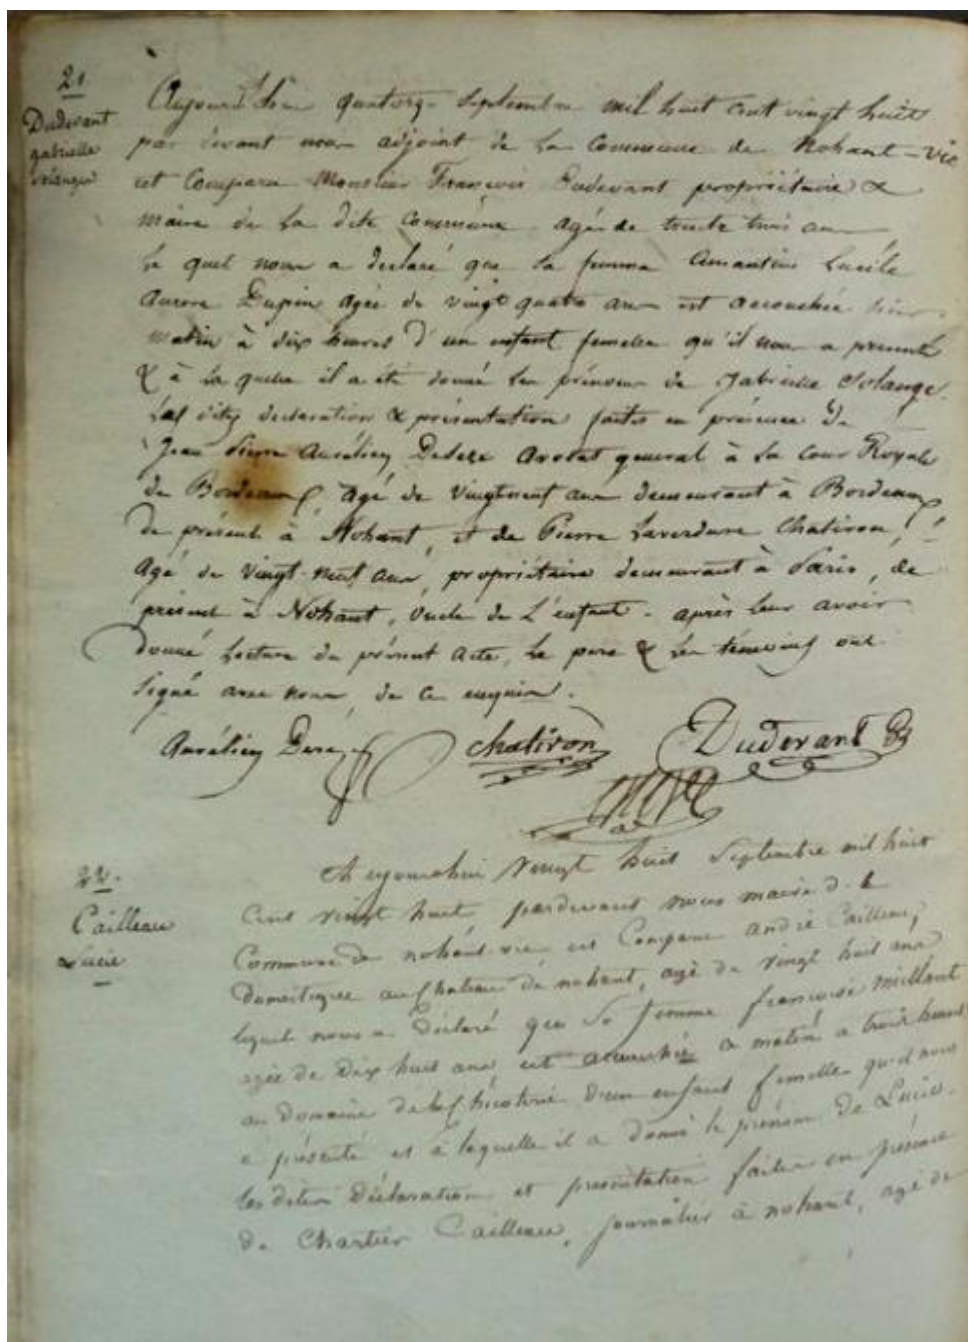 21
Dudevant
gabrielle
solange
Aujourd'hui quatorze Septembre mil huit cent vingt huit
par devant nous adjoint de la Commune de Nohant-Vic
est Comparu Monsieur François Dudevant propriétaire &
maire de la dite Commune agé de trente trois ans
le quel nous a declaré que sa femme Amantine Lucile
Aurore Dupin agée de vingt quatre ans est accouchée hier
matin à dix heures d'un enfant femelle qu'il nous a presenté
& à la quelle il a été donné les prénoms de Gabrielle Solange.
Les dites declaration & présentation faites en présence de
Jean Pierre Aurélien Deseze Avocat general à la Cour Royale
de Bordeaux, Agé de Vingt neuf ans demeurant à Bordeaux
de présent à Nohant, et de Pierre Laverdure Chatiron,
Agé de Vingt-neuf ans, propriétaire demeurant à Paris, de
présent à Nohant, Oncle de L'enfant. après leur avoir
donné Lecture du présent Acte, Le pere & Les témoins ont
Signé avec nous, de ce enquis.
Aurélien Deseze
Chatiron
Dudevant
22.
Cailleau
Lucie
Aujourdhui Vingt huit Septembre mil huit
Cent vingt huit pardevant nous maire de la
Commune de nohant-vic, est Comparu andré Cailleau,
Domestique au Chateau de nohant, agé de vingt huit ans
lequel nous a déclaré que sa femme françoise Meillant
agée de Dix huit ans est accouchée ce matin a trois heures
au domaine de la Chicoterie d'un enfant femelle qu'il nous
a présenté et à laquelle il a donné le prénom de Lucie.
les dites Déclaration et presentation faites en présence
de Chartier Cailleau, journalier à nohant, agé de